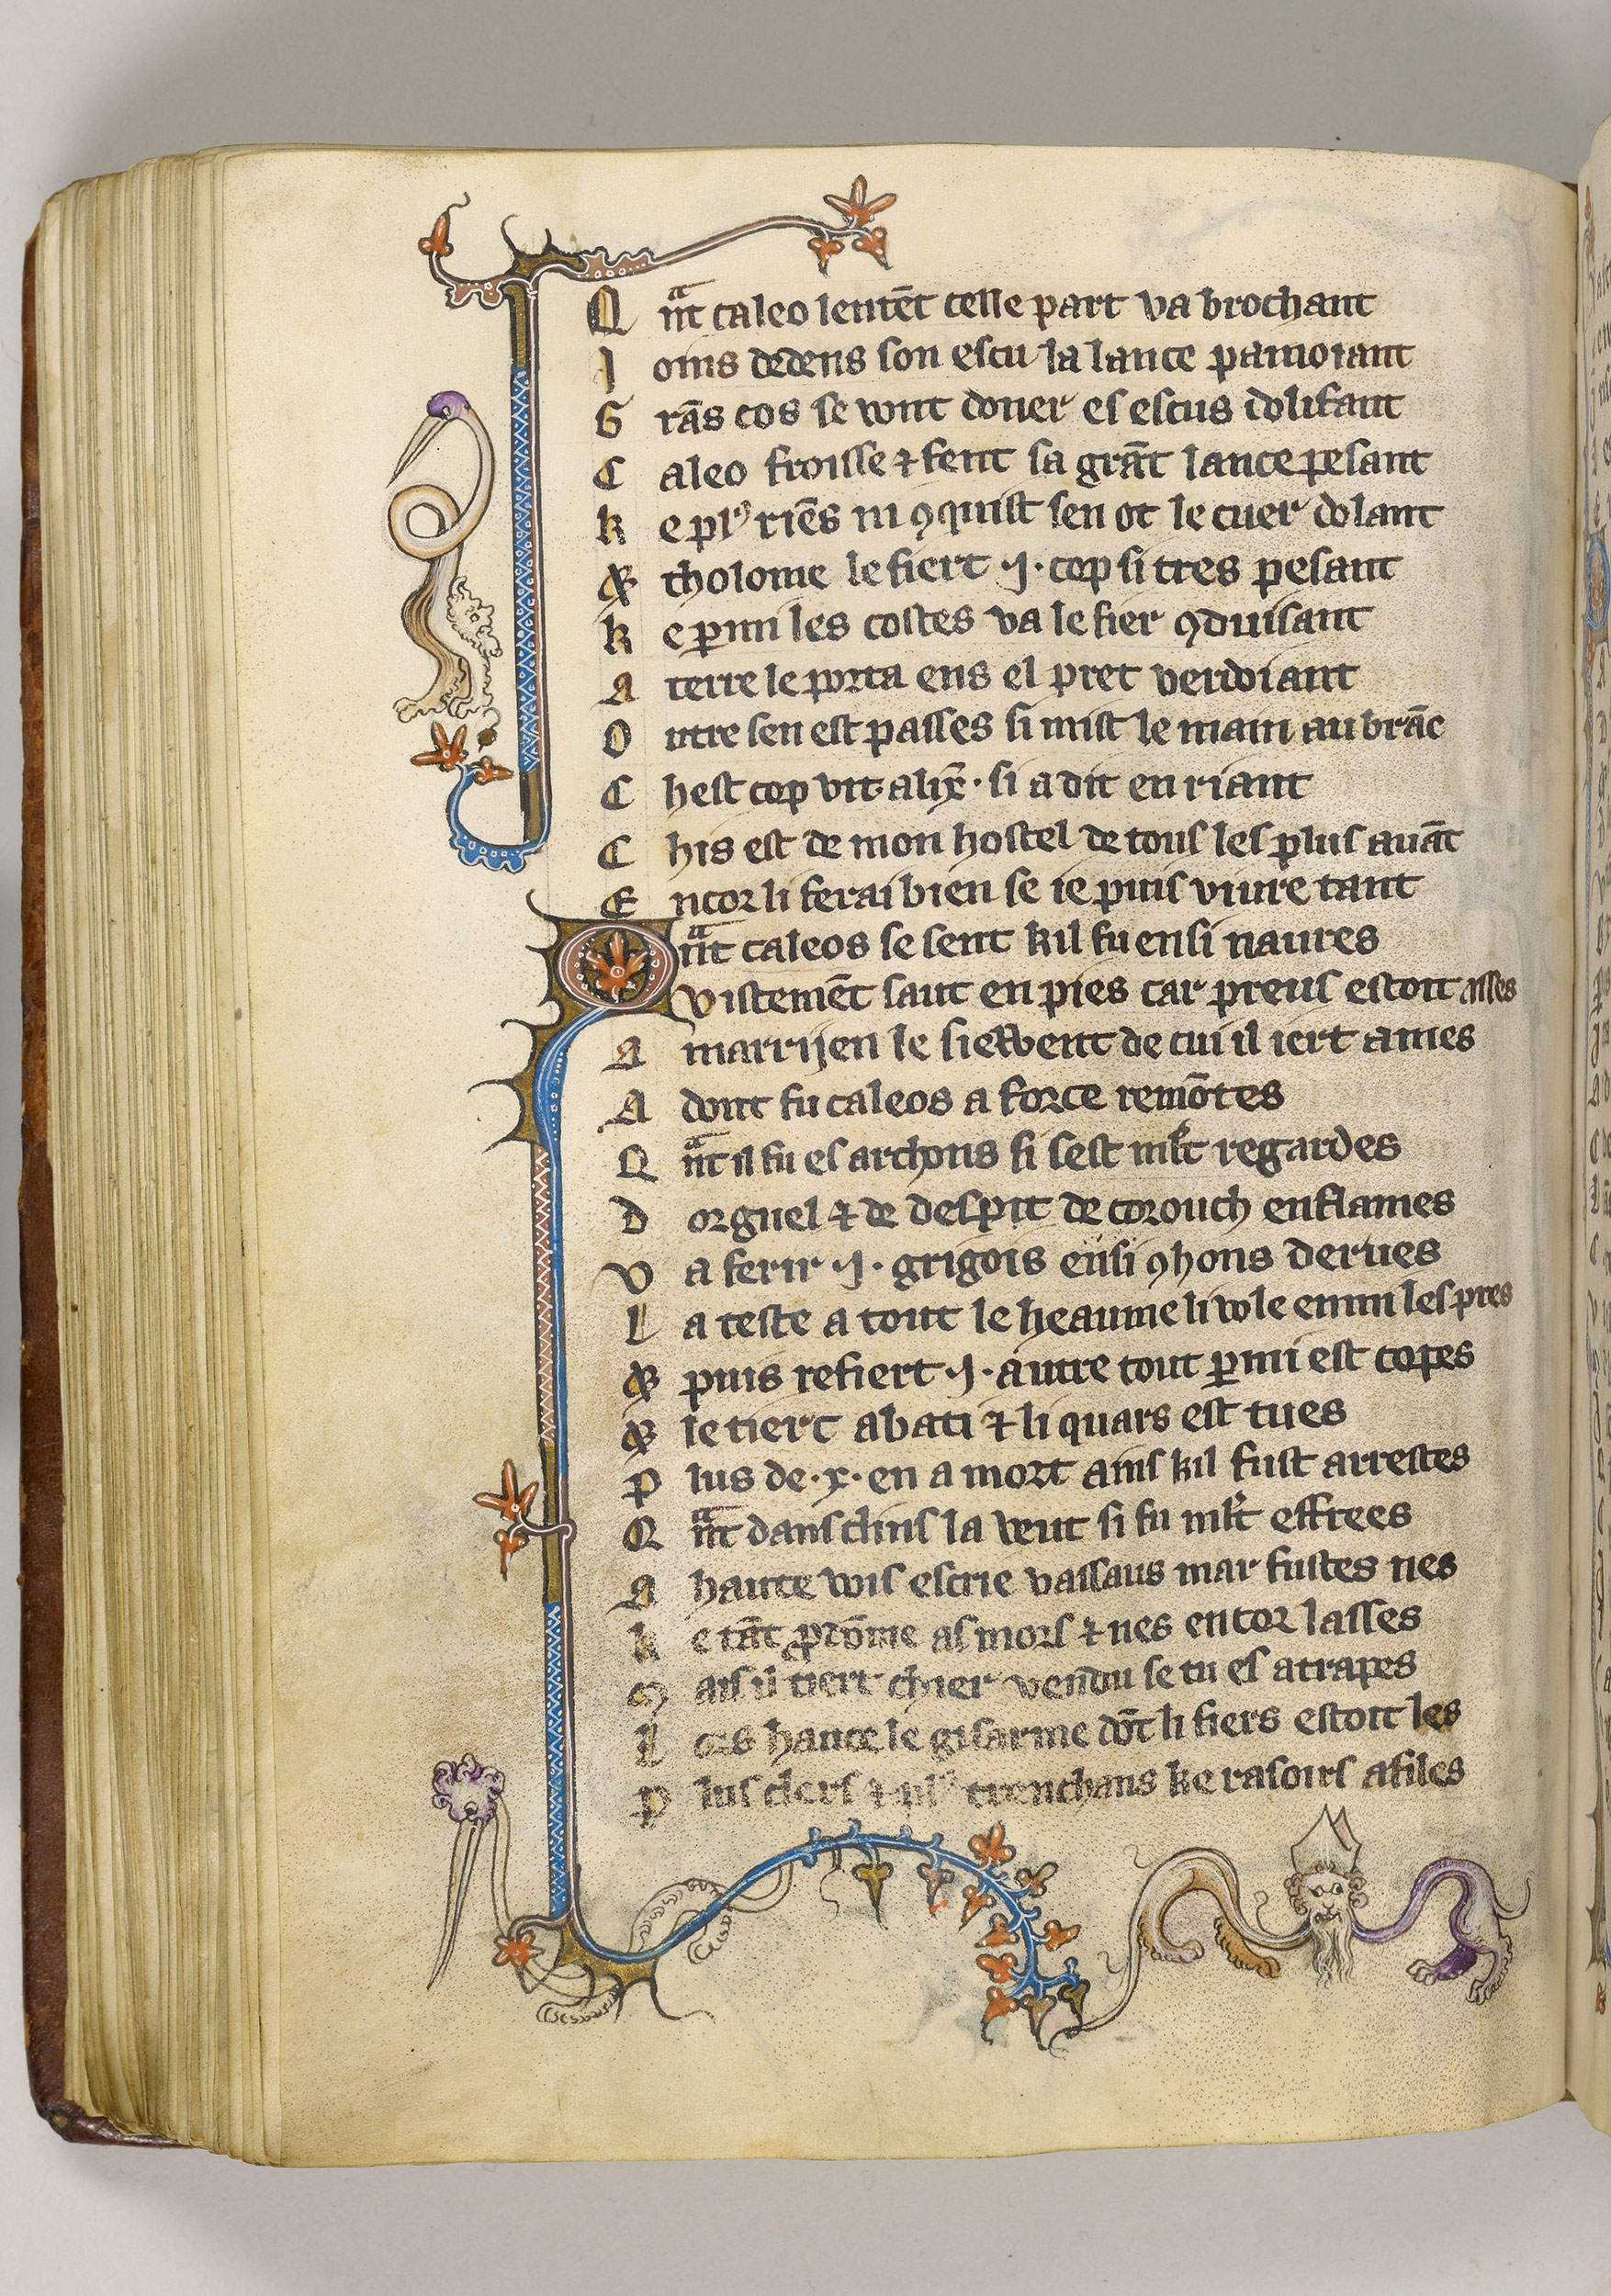 Q nᵃt caleo lentēt celle part va brochant
J oins dedens son escu la lance pamoiant
G rās cos se vont doner es escus dolifant
C aleo froisse ⁊ fent sa grāt lance pesant
k e plꝰ riēs ni ꝯquist sen ot le cuer dolant
& tholome le fiert .j. cop si tres pesant
k e ꝑmi les costes va le fier ꝯduisant
A terre le porta ens el pret verdoiant
O utre sen est passes si mist le main au brāc
C hest cop vit alix̄. si a dit en riant
C his est de mon hostel de tous les plus auāt
E ncor li ferai bien se ie puis viure tant
Q nᵃt caleos se sent kil fu ensi naures
Vistemēt saut en pies car preus estoit asses
A marrijen le siewent de cui il iert ames
A dont fu caleos a force remōtes
Q nᵃt il fu es archons si sest ml̄t regardes
D orguel ⁊ de despit de corouch enflames
V a ferir .j. grigois ensi ꝯhons derues
L a teste a tout le heaume li vole enmi les pres
& puis refiert .j. autre tout ꝑmi est copes
& le tierc abati ⁊ li quars est tues
P lus de .x. en a mort ains kil fust arrestes
Q nᵃt dans clins la veut si fu ml̄t effrees
A haute vois escrie vassaus mar fustes nes
k e tāt ꝓdōme as mors ⁊ nes encor lasses
M ais il tiert chier vendu se tu es atrapes
L ors hauce le gisarme dōt li fiers estoit les
P lus clers ⁊ plꝰ trenchans ke rasoirs afiles